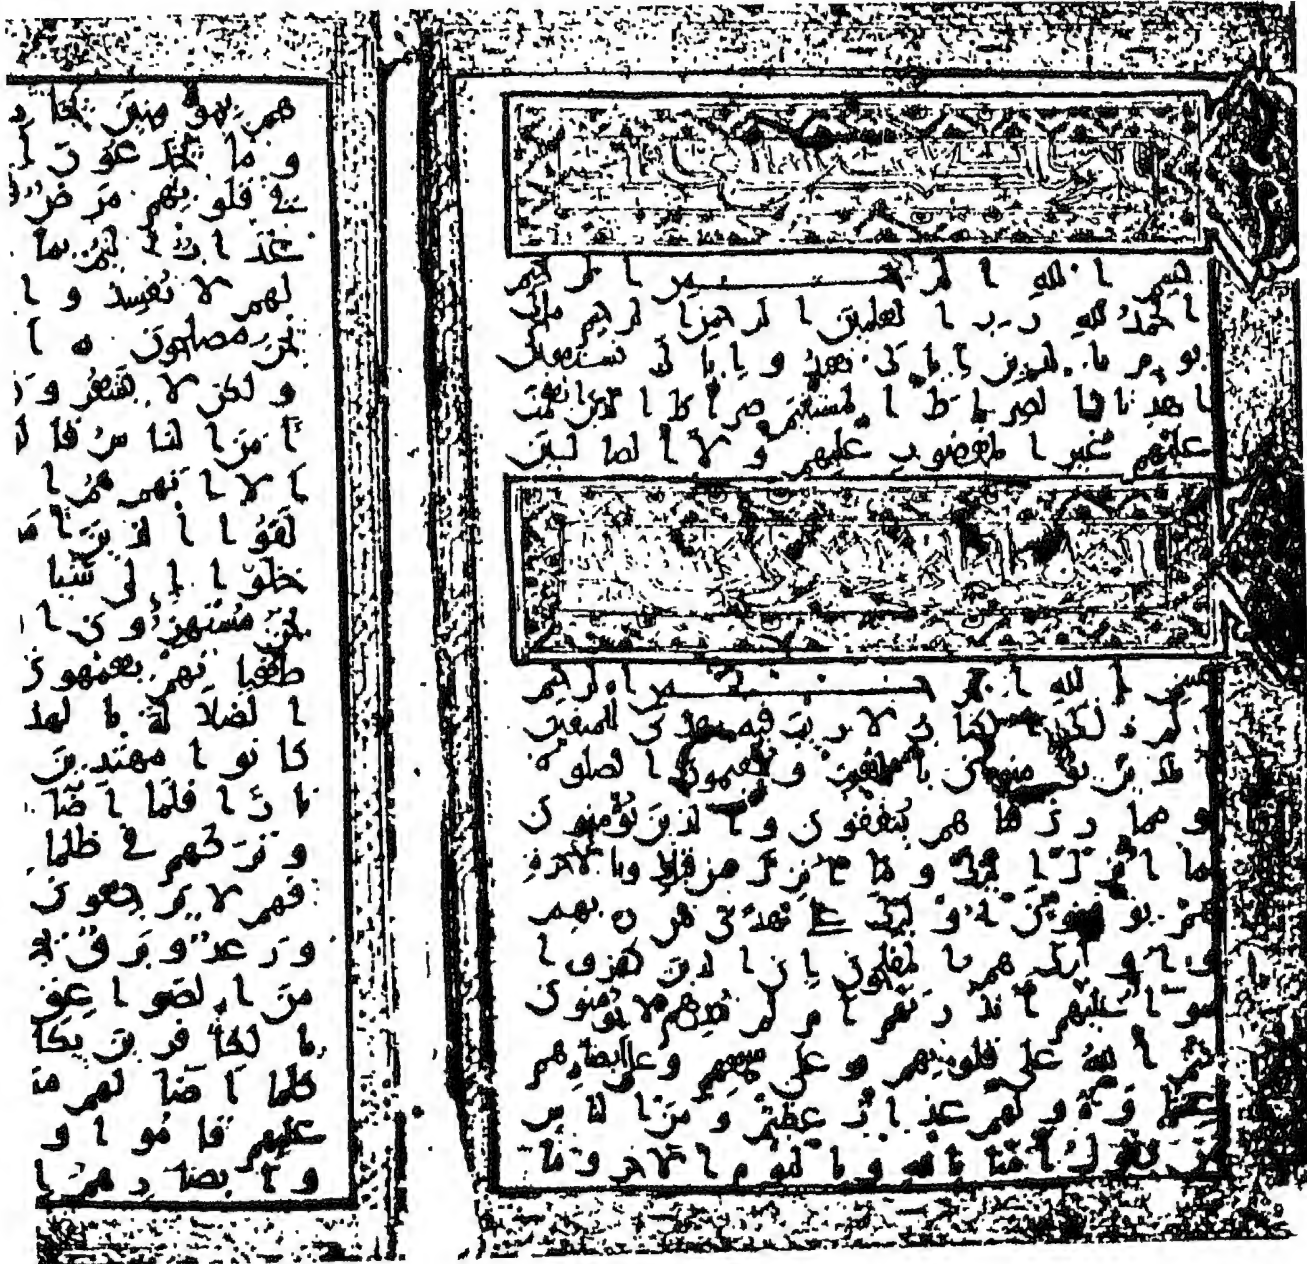 بسم الله الرحمن الرحيم
الحمد لله رب العلمين الرحمن الرحيم ملك
يوم الدين اياك نعبد واياك نستعين
اهدنا الصراط المستقيم صراط الذين انعمت
عليهم غير المغضوب عليهم ولا الضالين
بسم الله الرحمن الرحيم
الم ذلك الكتاب لا ريب فيه هدى للمتقين
الذين يؤمنون بالغيب ويقيمون الصلوة
ومما رزقناهم ينفقون والذين يؤمنون
بما انزل اليك وما انزل من قبلك وبالاخرة
هم يوقنون اولئك على هدى من ربهم
واولئك هم المفلحون ان الذين كفروا
سوا عليهم اانذرتهم ام لم تنذرهم لا يؤمنون
ختم الله على قلوبهم وعلى سمعهم وعلى ابصارهم
غشاوة ولهم عذاب عظيم ومن الناس
من يقول امنا بالله وباليوم الاخر وما
هم بمؤمنين يخا
وما يخدعون ا
في قلوبهم مرض
عذاب اليم بما
لهم لا تفسدوا
نحن مصلحون ا
ولكن لا يشعر و
امن الناس قالو
الا انهم هم ا
لقوا الذين ام
خلوا الى شيا
نحن مستهزؤن ا
طغيانهم يعمهون
الضلالة بالهد
كانوا مهتدين
نارا فلما اضا
وتركهم في ظلما
فهم لا يرجعون
ورعد وبرق يج
من الصواعق
بالكافرين يكا
كلما اضا لهم م
عليهم قاموا و
وابصارهم ا